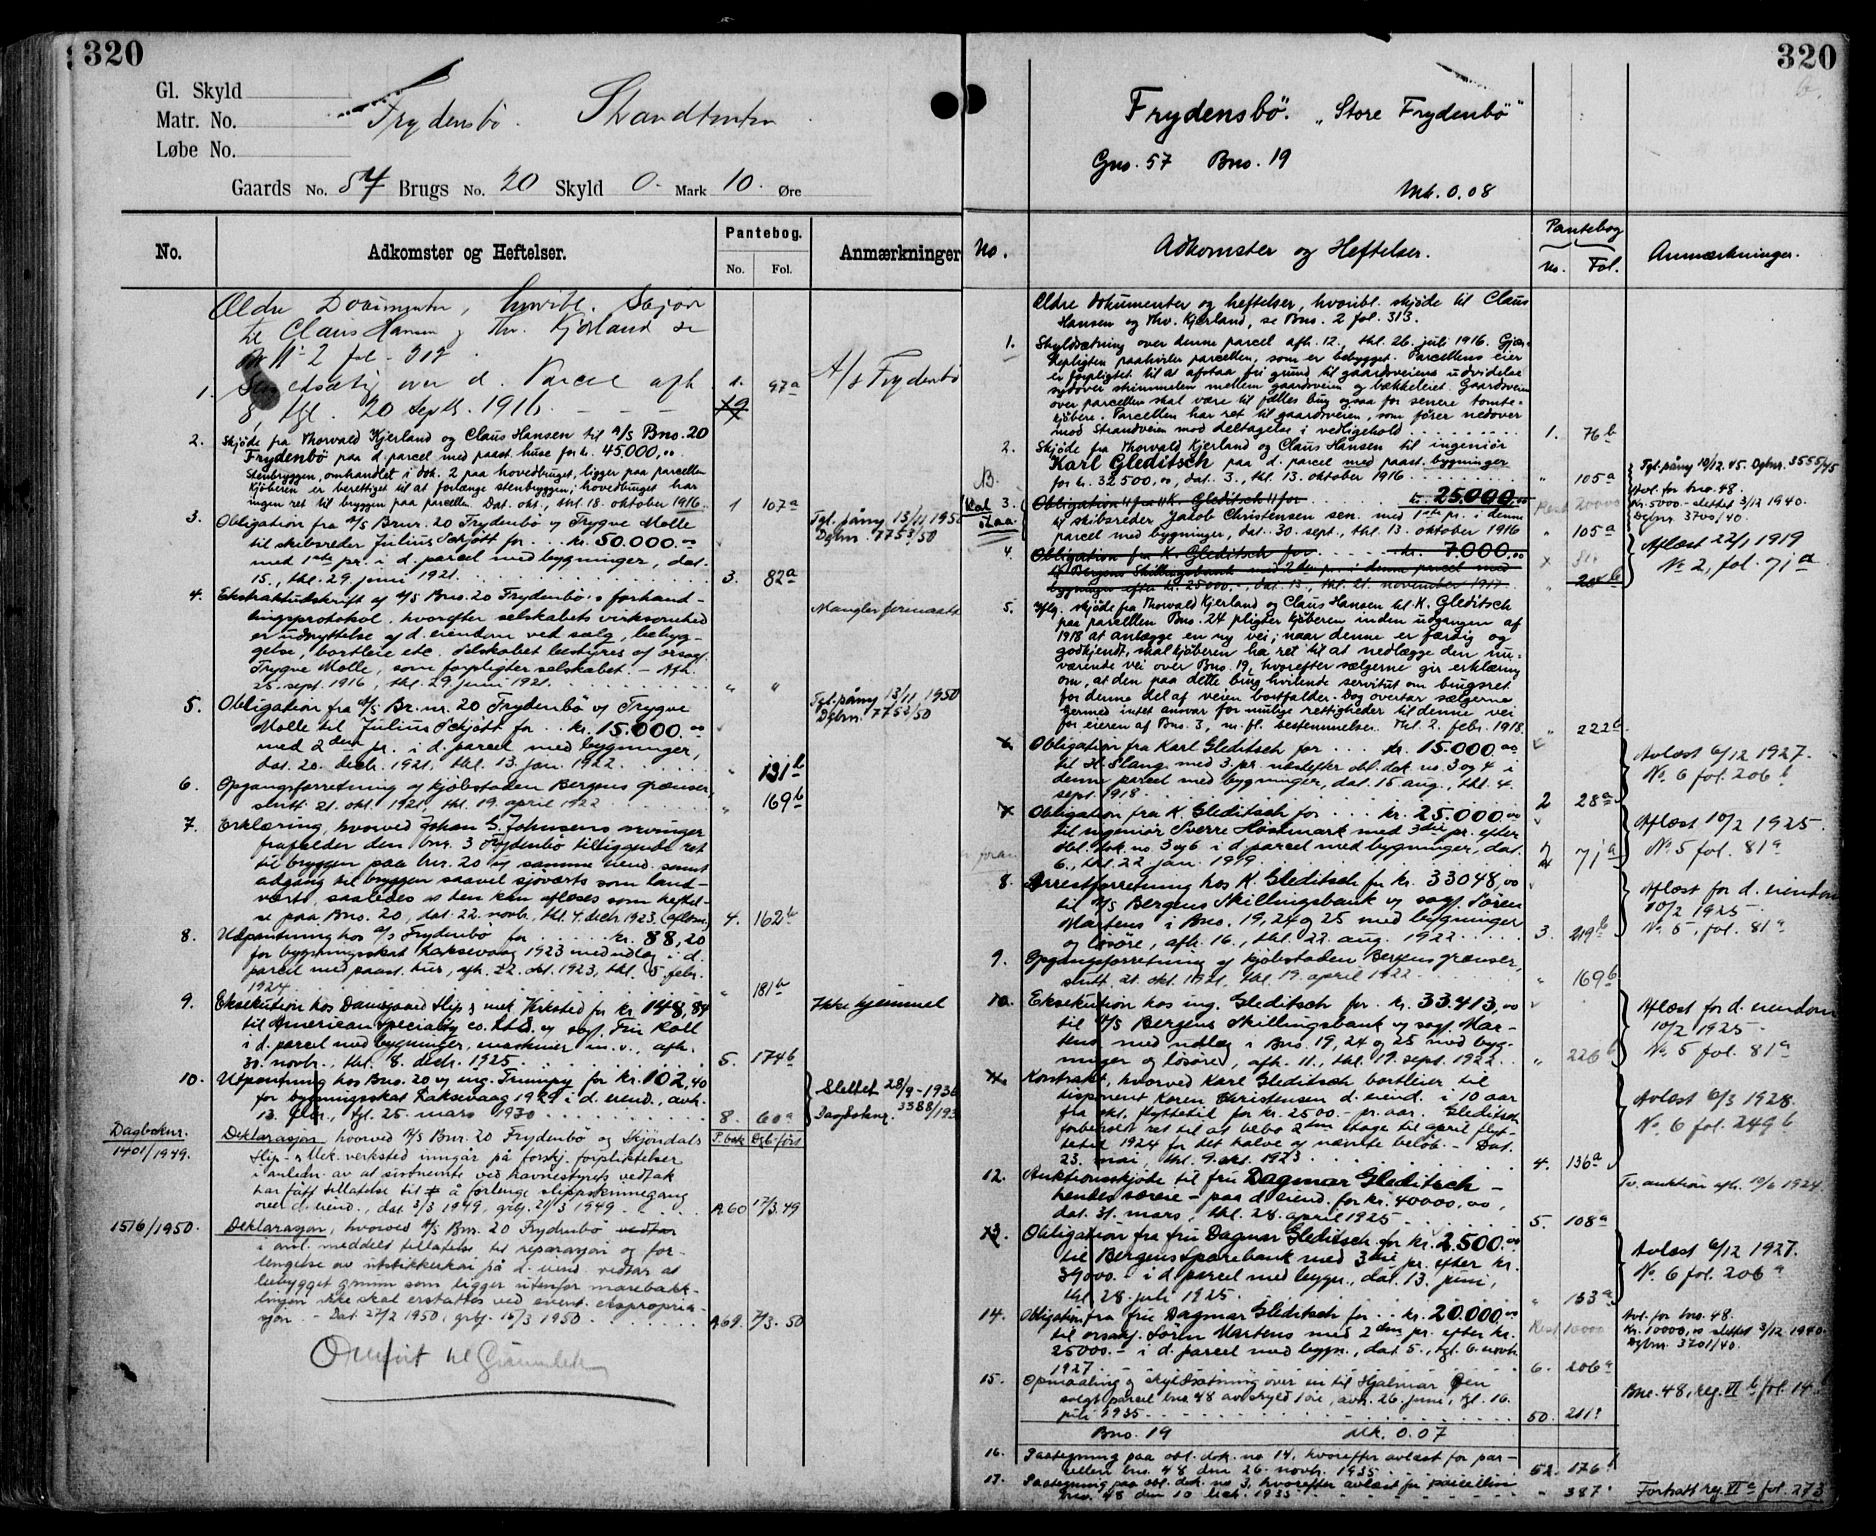 320
Gl. Skyld
Matr. No. Frydensbö.
Løbe No.
Gaards No. 57 Brugs No. 20 Skyld 0. Mark 10. Øre
No. Adkomster og Heftelser. Pantebog. No. Fol. Anmærkninger
Ældre Documenter, hvoribl. Skjøde
til Claus Hansen og Thv. Kjerland se
Br. No 2 fol. 313.
1. over d. Parcel afh. 1. 97a A/s Frydenbö
8, tgl. 20 Septb. 1916. - - - 19
2. Skjøde fra Thorvald Kjerland og Claus Hansen til A/S Bno. 20
Frydenbö paa d. parcel med paast. huse for kr. 45000,00.
Stenbryggen, omhandlet i dok. 2 paa hovedbruget, ligger paa parcellen
Kjöberen er berettiget til at forlænge stenbryggen; hovedbruget har
ingen ret til bryggen paa parcellen. Dat. okt., thl. 18. oktober 1916. 1 107a
3. Obligation fra A/S Bnr. 20 Frydenbö v/ Trygve Molle Tgl. påny 13/11 1950
til skibsreder Julius Schjött for . . kr. 50.000.00 Dgbnr. 7753/50
med 1ste pr. i d. parcel med bygninger, dat.
15., thl. 29. juni 1921. 3. 82a
4. Ekstraktutskrift af A/S Bno. 20 Frydenbö's forhand-
lingsprotokol, hvorefter selskabets virksomhed Mangler
er udnyttelse af d. eiendom ved salg, bebyg-
gelse, bortleie etc. Selskabet bestyres af orsagf.
Trygve Molle, som forpligter selskabet. - Afh.
25. sept. 1916, thl. 29. juni 1921. " "
5. Obligation fra A/S Br. nr. 20 Frydenbö v/ Trygve Tgl. påny 13/11 1950
Molle til Julius Schjött for . . kr. 15.000.00 Dgbnr. 7752/50
med 2den pr. i d. parcel med bygninger,
dat. 20. decb. 1921, thl. 13. jan. 1922. " 131b
6. Opgangsforretning af kjøbstaden Bergens grænser,
slutt. 21. okt. 1921, thl. 19. april 1922 " 169b
7. Erklæring, hvorved Johan G. Johnsens arvinger
frafalder den bnr. 3 Frydenbö tilliggende ret
til bryggen paa bnr. 20 af samme eiend. samt
adgang til bryggen saavel sjöværts som land-
værts, saaledes at den kan aflæses som heftel-
se paa Bno. 20, dat. 22. novb., thl. 4. decb. 1923. 4. 162b
8. Utpantning hos A/S Frydenbö for kr. 88,20
for bygningsskat Laksevaag 1923 med udlæg i d.
parcel med paast. hus, afh. 22. okt. 1923, thl. 5. febr.
1924. " 181b
9. Eksekution hos Damsgaard Slip & mek. Verksted for kr. 148,84 Ikke hjemmel
til American Speciality co. Ltd. v/ sagf. Finn Koll
i d. parcel med bygninger, maskiner m. v., afh.
30. novbr., thl. 8. decbr. 1925. 5. 174b
10. Utpantning hos Bno. 20 v/ ing. Trumpy for kr. 102,40 Slettet 28/9-1936
for bygningsskat Laksevaag 1929 i d. eiend., avh. Dagboknr. 3388/193
13. febr., tgl. 25. mars 1930. 8. 60a
Dagboknr. 1401/1949. Deklarasjon hvorved A/S Bnr. 20 Frydenbö og Skjöndals P. bok Dgb.-ført
Slip- & Mek. verksted inngår på forskj. forpliktelser
i anledn. av at sistnevnte ved havnestyrets vedtak
har fått tillatelse til å forlenge slippskinnegang
over d. eiend., dat. 3/3 1949, 1949 A.60 17/3.49
1516/1950. Deklarasjon, hvorved A/S Bnr. 20 Frydenbö vedtar
i anl. meddelt tillatelse til reparasjon og for-
lengelse av utstikkerkai på d. eiend. vedtar at
bebygget grunn som ligger utenfor marebakk-
linjen ikke skal erstattes ved event. ekspropria-
sjon. - Dat. 27/2 1950, 15/3 1950. A.69. 7/3.50
320
Frydensbö. „Store Frydenbö"
Gno. 57 Bno. 19
Mk. 0.08
No. Adkomster og Heftelser. Pantebog No. Fol. Anmærkninger.
Ældre dokumenter og heftelser, hvoribl. skjöde til Claus
Hansen og Thv. Kjerland, se Bno. 2 fol. 313.
1. Skyldsætning over denne parcel afh. 12., thl. 26. juli 1916. Gjær-
depligten paahviler parcellen, som er bebygget. Parcellens eier
er forpligtet til at afstaa fri grund til gaardsveiens udvidelse
sydover skimmelen mellem gaardsveien og bækkeleiet. Gaardsveien
over parcellen skal være til fælles brug ogsaa for senere tomte-
kjöbere. Parcellen har ret til gaardsveien, som förer nedover
mod Strandveien mod deltagelse i vedligehold 1. 76b
2. Skjöde fra Thorvald Kjerland og Claus Hansen til ingeniör
Karl Gleditsch paa d. parcel med paast. bygninger
for kr. 32500,00, dat. 3., thl. 13. oktober 1916 " 105a
3. Obligation fra K. Gleditsch for kr. 25000.00 Rest 20000 Tgl. påny 10/12 45. Dgbnr. 3555/45
til skibsreder Jakob Christensen sen. med 1ste pr. i denne Avl. for bno. 48.
parcel med bygninger, dat. 30. sept., thl. 13. oktober 1916 " 105a Kr. 5000.- slettet 3/12 1940. Dgbnr. 3700/40.
4. Obligation fra K. Gleditsch for kr. 7000.00 Aflæst 22/1 1919
til Bergens Skillingsbank med 2den pr. i denne parcel med No 2, fol. 71a
bygninger efter kr. 25000.-, dat. 13., thl. 21. november 1917.
5. Iflg. skjöde fra Thorvald Kjerland og Claus Hansen til K. Gleditsch
paa parcellen Bno. 24 pligter kjöberen inden udgangen af
1918 at anlægge en ny vei; naar denne er færdig og
godkjendt, skal kjöberen ha ret til at nedlægge den nu-
værende vei over Bno. 19, hvorefter sælgerne gir erklæring
om, at den paa dette brug hvilende servitut om brugsret
for denne del af veien bortfalder. Dog overtar sælgerne
gjernes intet ansvar for mulige rettigheder til denne vei
for eieren af Bno. 3, m. fl. bestemmelser. Thl. 2. febr. 1918. " 222b
6. Obligation fra Karl Gleditsch for . . . kr. 15.000.00 Avlæst 6/12 1927.
til H. Slang med 3. pr. næstefter obl. dok. no. 3 og 4 i No. 6 fol. 206b
denne parcel med bygninger, dat. 15. aug., thl. 4.
sept. 1918. 2 28a
7. Obligation fra K. Gleditsch for . . . kr. 25.000.00 Aflæst 10/2 1925.
til ingeniör Sverre Höstmark med 3die pr. efter No. 5 fol. 81a
obl. dok. no. 3 og 6 i d. parcel med bygninger, dat.
6., thl. 22. jan. 1919. 2 71a
8. Arrestforretning hos K. Gleditsch for kr. 33048,00 Aflæst for d. eiendom
til A/S Bergens Skillingsbank v/ sagf. Sören 10/2 1925.
Martens i Bno. 19, 24 og 25 med bygninger No. 5. fol. 81a
og lösöre, afh. 16., thl. 22. aug. 1922. 3. 219b
9. Opgangsforretning af kjöbstaden Bergens grænser,
slutt. 21. okt. 1921, thl. 19. april 1922. " 169b
10. Eksekution hos ing. Gleditsch for kr. 33.413,00 Aflæst for d. eiendom
til A/S Bergens Skillingsbank v/ sagf. Mar- 10/2 1925.
tens, med udlæg i Bno. 19, 24 og 25 med byg- No. 5 fol. 81a
ninger og lösöre, afh. 11., thl. 19. sept. 1922. " 226b
11. Kontrakt, hvorved Karl Gleditsch bortleier til Avlæst 6/3 1928.
disponent Karen Christensen d. eiend. i 10 aar No. 6 fol. 249b
fra okt. flyttetid for kr. 2500.- pr. aar. Gleditsch
forbeholdt ret til at bebo 2den etage til april flyt-
tetid 1924 for det halve av nævnte beløb. - Dat.
23. mai, thl. 9. okt. 1923. 4. 136a
12. Auktionsskjöde til fru Dagmar Gleditsch - Tv. auktion afh. 10/6 1924.
hendes særeie - paa d. eiend. for kr. 40000,00,
dat. 31. mars, thl. 28. april 1925. 5. 108a
13. Obligation fra fru Dagmar Gleditsch for kr. 2.500.00 Avlæst 6/12 1927.
til Bergens Sparebank med 3die pr. efter kr. No. 6 fol. 206a
39000.- i d. parcel med bygn., dat. 13. juni,
thl. 28. juli 1925. " 153a
14. Obligation fra fru Dagmar Gleditsch for . . kr. 20.000.00 Rest 10000 Avl. for bno. 48.
til orsakf. Sören Martens med 2den pr. efter kr. Kr. 10000,00 slettet 3/12 1940.
25000.- i d. parcel med bygn., dat. 5., tgl. 6. novb. Dgbnr. 3701/40.
1927. 6. 206a
15. Opmaaling & skyldsætning over en til Hjalmar
solgt parcel bno. 48 av skyld 1 öre, avh. 26. juni, tgl. 16. Bno. 48, reg. VI b fol. 14
juli 1935. 50. 211a
Bno. 19 Mk. 0.07
16. Paategning paa obl. dok. no 14, hvorefter avlæst for par-
cellen bno. 48 den 26. novb. 1935. 52. 176
17. Paategning paa obl. dok. no 3, hvorefter avlæst for parcellen
bno. 48 den 10. 1935 " 387 Fortsatt reg. VI c fol. 273